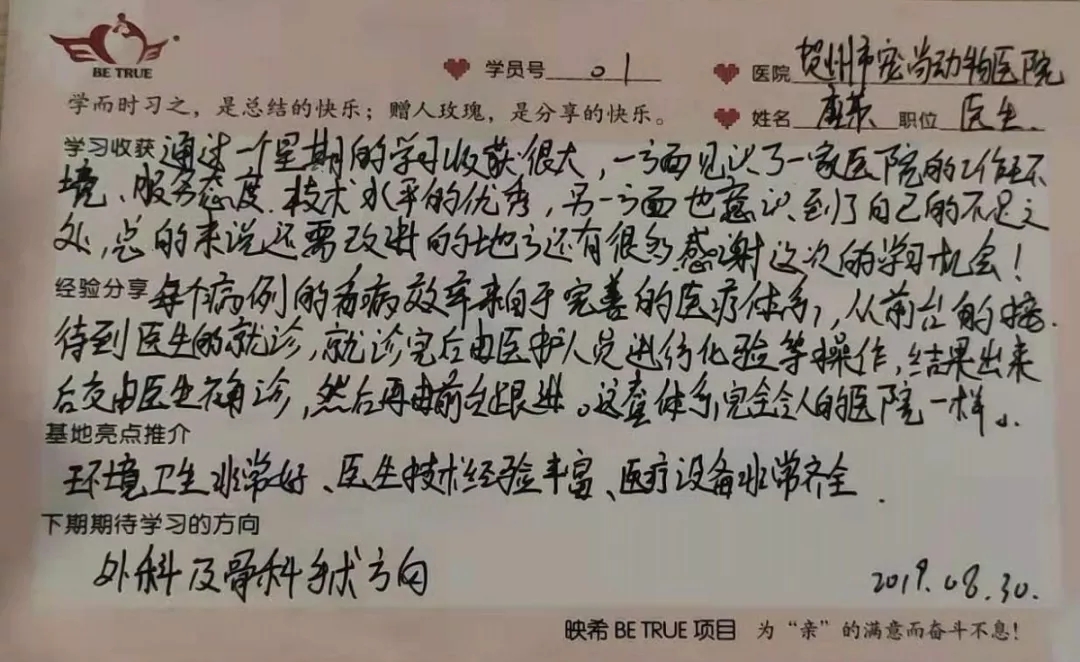 BE TRUE
学员号 01
医院 贺州市宠尚动物医院
学而时习之，是总结的快乐；赠人玫瑰，是分享的快乐。
姓名 职位 医生.
学习收获 通过一个星期的学习收获很大，一方面见识了一家医院的工作环
境、服务态度.技术水平的优秀，另一方面也意识到了自己的不足之
处，总的来说还需改进的地方还有很多,感谢这次的学习机会！
经验分享 每个病例的看病效率来自于完善的医疗体系，从前台的接
待到医生的就诊,就诊完后由医护人员进行化验等操作,结果出来
后交由医生确诊，然后再由前台跟进。这套体系,完全令人的医院一样。
基地亮点推介
环境卫生非常好、医生技术经验丰富、医疗设备非常齐全.
下期期待学习的方向
外科及骨科手术方向
2019.08.30.
映希 BE TRUE 项目 为“亲”的满意而奋斗不息！